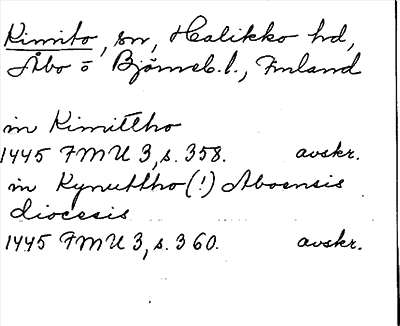 Kimito, sn, Halikko hd,
Åbo o Björneb. l., Finland
in Kimittho
1445 FMU 3, s. 358. avskr.
in Kynuttho (!) Aboensis
diocesis
1445 FMU 3, s. 360. avskr.